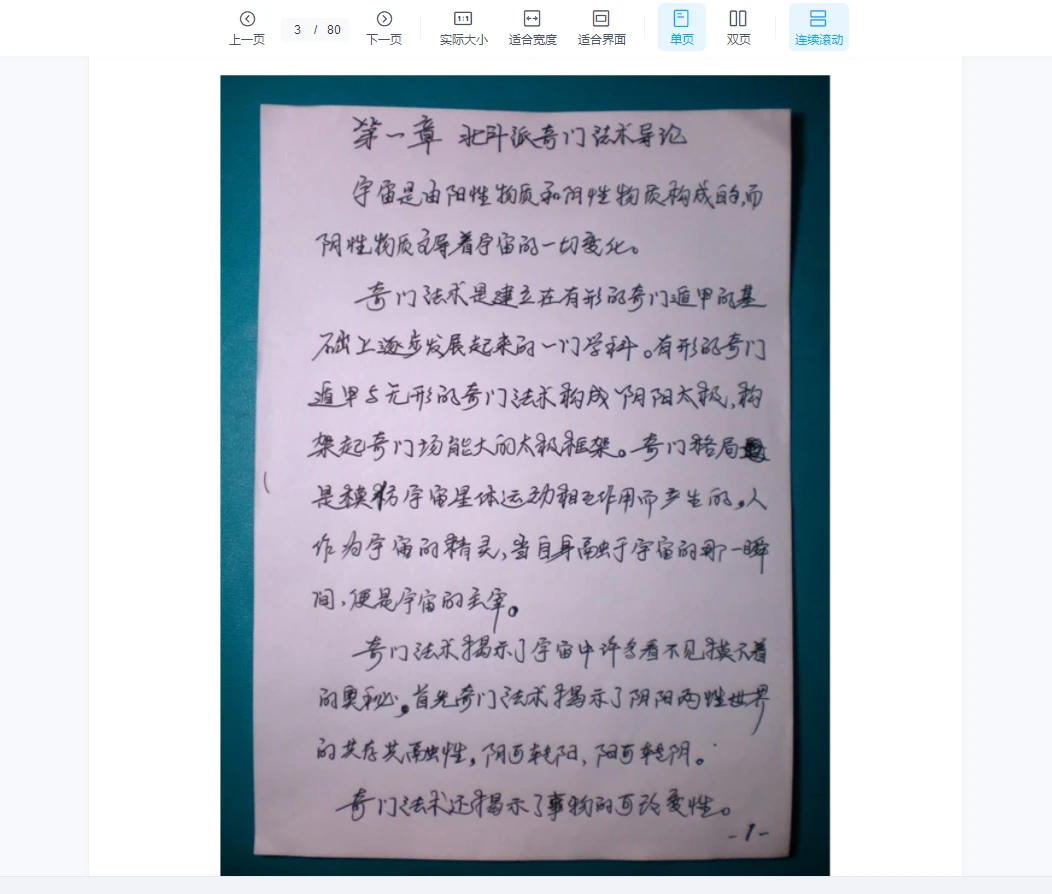 上一页
3 / 80
下一页
1:1
实际大小
适合宽度
适合界面
单页
双页
连续滚动
第一章 北斗派奇门法术导论
宇宙是由阳性物质和阴性物质构成的,而
阴性物质主导着宇宙的一切变化。
奇门法术是建立在有形的奇门遁甲的基
础上逐步发展起来的一门学科。有形的奇门
遁甲与无形的奇门法术构成阴阳太极,构
架起奇门场能大的太极框架。奇门格局
是模仿宇宙星体运动相互作用而产生的。人
作为宇宙的精灵,当自身融于宇宙的那一瞬
间,便是宇宙的主宰。
奇门法术揭示了宇宙中许多看不见摸不着
的奥秘。首先奇门法术揭示了阴阳两性世界
的共存共融性,阴可转阳,阳可转阴。
奇门法术还揭示了事物的可改变性。
-1-